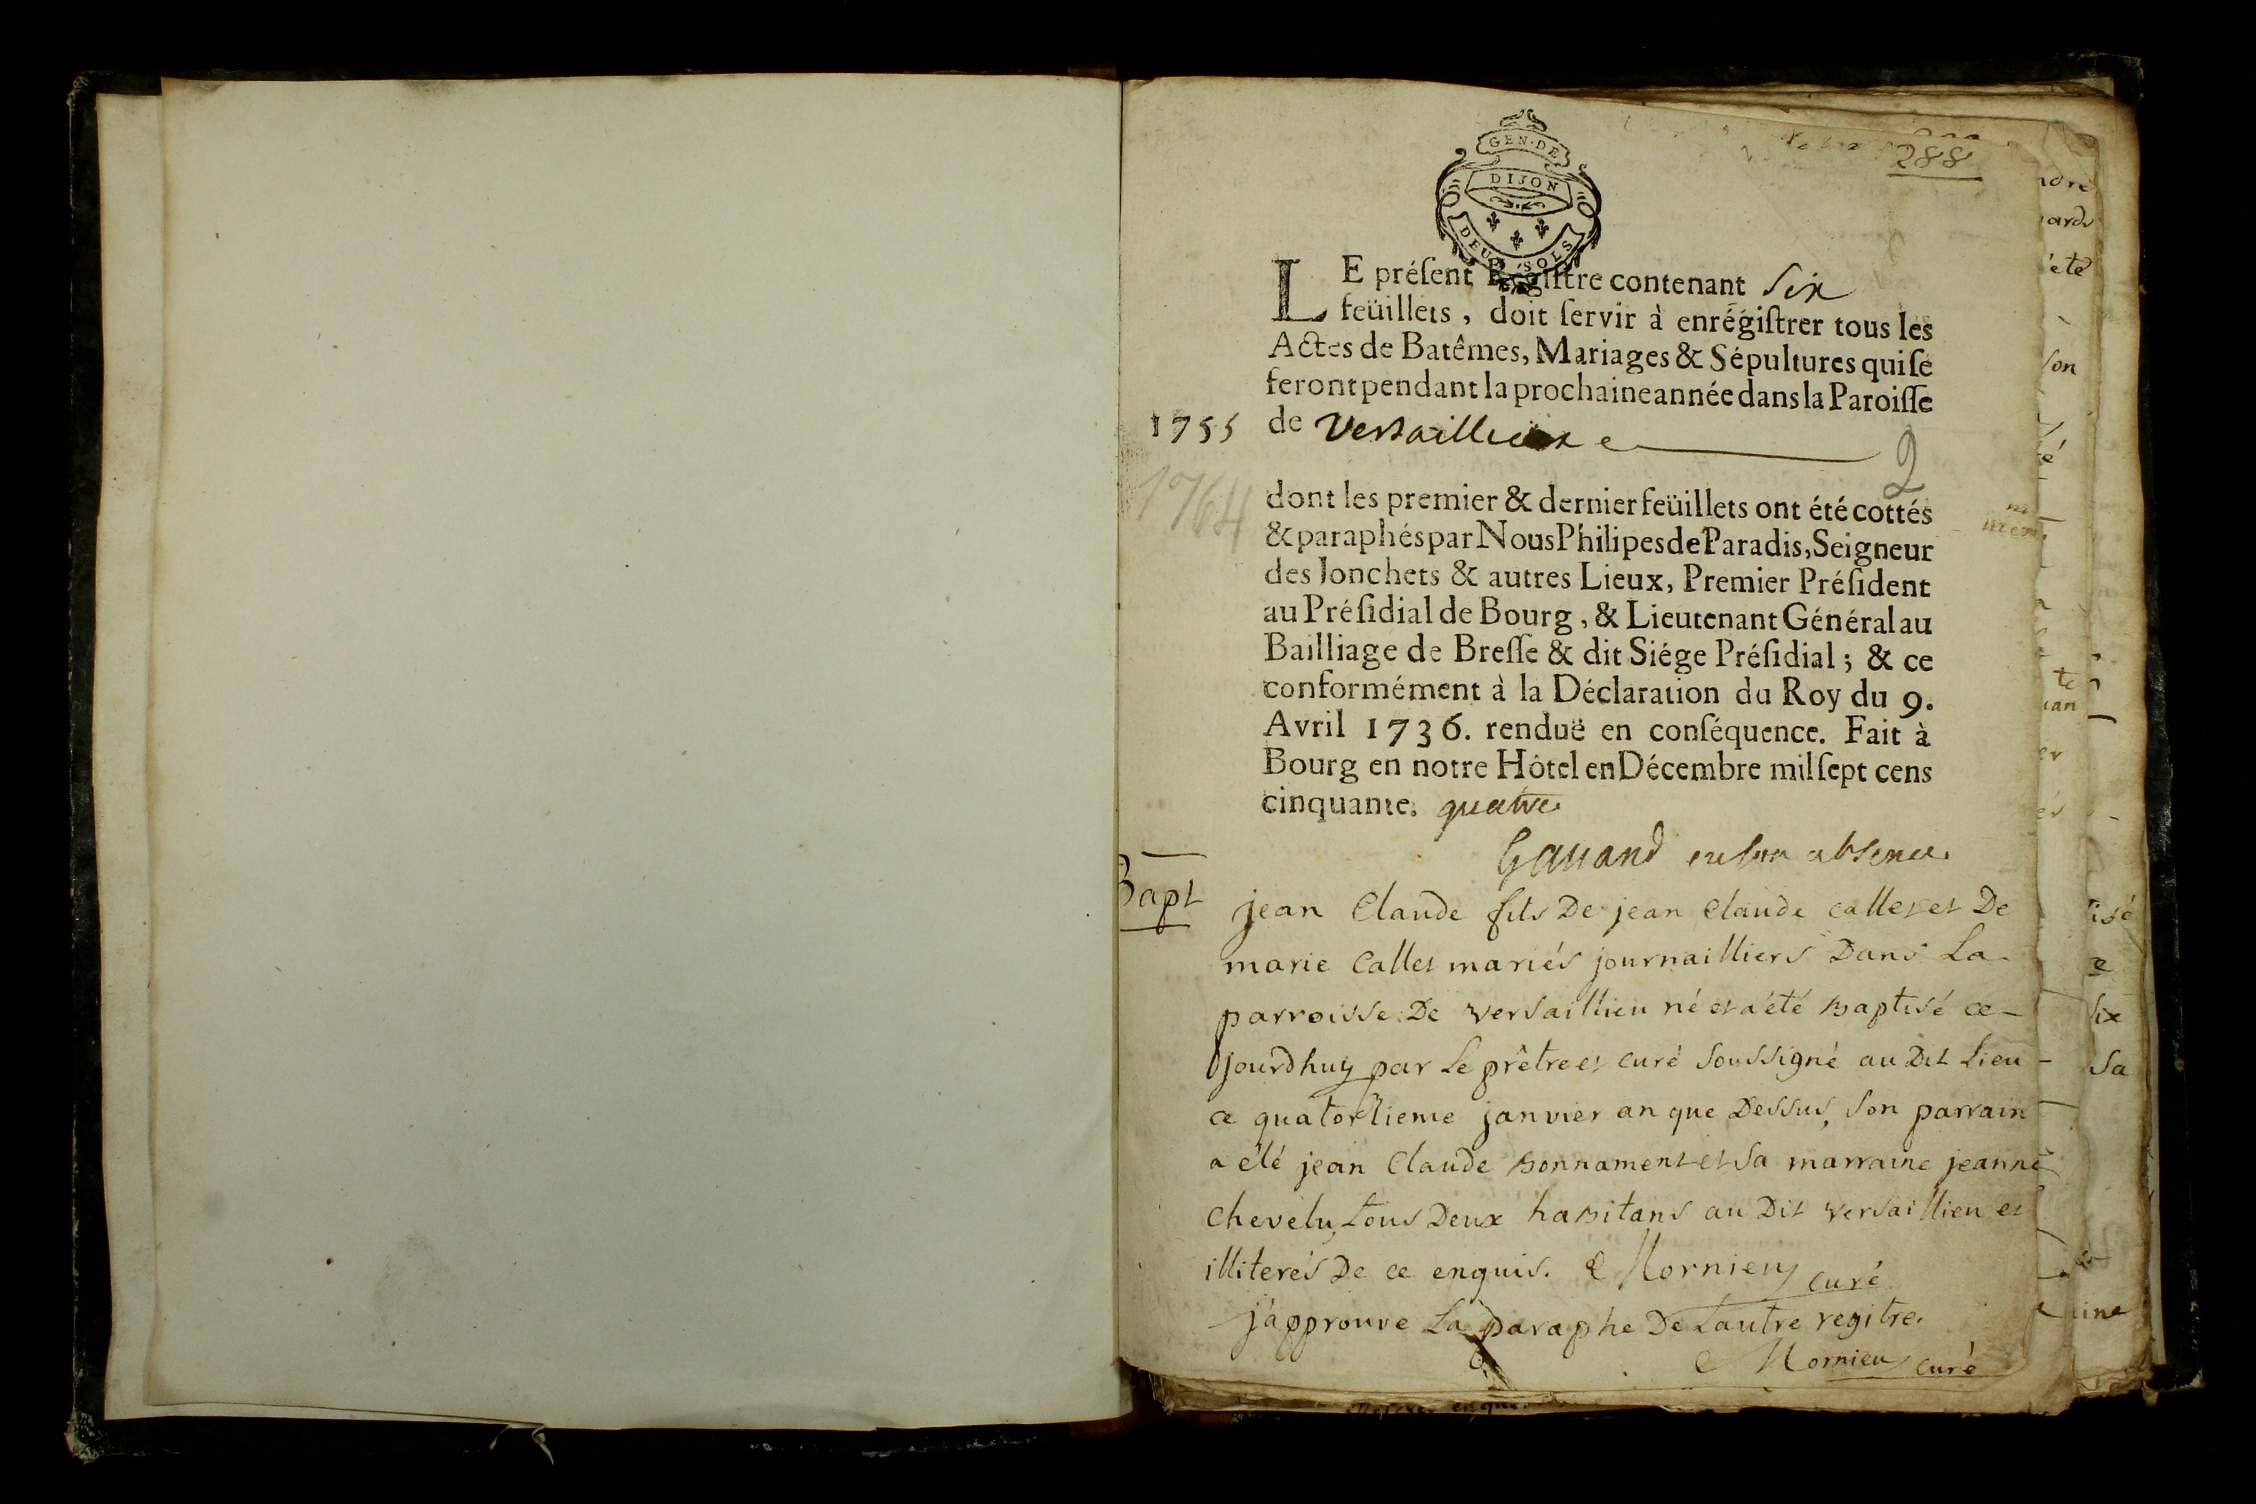 GEN·DE
DIJON
DEUX SOLS
288
LE préſent Regiſtre contenant Six
feüillets, doit ſervir à enrégiſtrer tous les
Actes de Batêmes, Mariages & Sépultures qui ſe
feront pendant la prochaine année dans la Paroiſſe
1755 de Versaillieux
2
1764
dont les premier & dernier feüillets ont été cottés
& paraphés par Nous Philipes de Paradis, Seigneur
des Jonchets & autres Lieux, Premier Préſident
au Préſidial de Bourg, & Lieutenant Général au
Bailliage de Breſſe & dit Siége Préſidial; & ce
conformément à la Déclaration du Roy du 9.
Avril 1736. renduë en conſéquence. Fait à
Bourg en notre Hôtel en Décembre mil ſept cens
cinquante. quatre
Gauand en son absence.
Bapt
jean Claude fils De jean Claude callet et De
marie Callet mariés journailliers Dans La
parroisse De versaillieu né et a été Baptisé ce
jourdhuy par Le prêtre et curé soussigné au Dit Lieu
ce quatorzieme janvier an que Dessus, son parrain
a été jean Claude Bonnament et sa marraine jeanne
chevelu, tous Deux habitans au Dit versaillieu et
illiterés De ce enquis. Mornieu curé
j'approuve La paraphe De Lautre regitre.
Mornieu curé